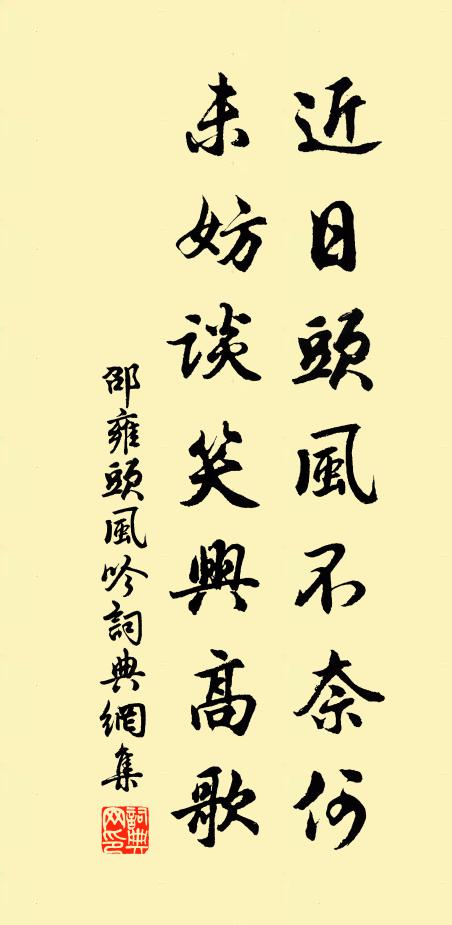 近日頭風不奈何
未妨談笑興高歌
邵雍頭風吟詞典網集
詞典网印